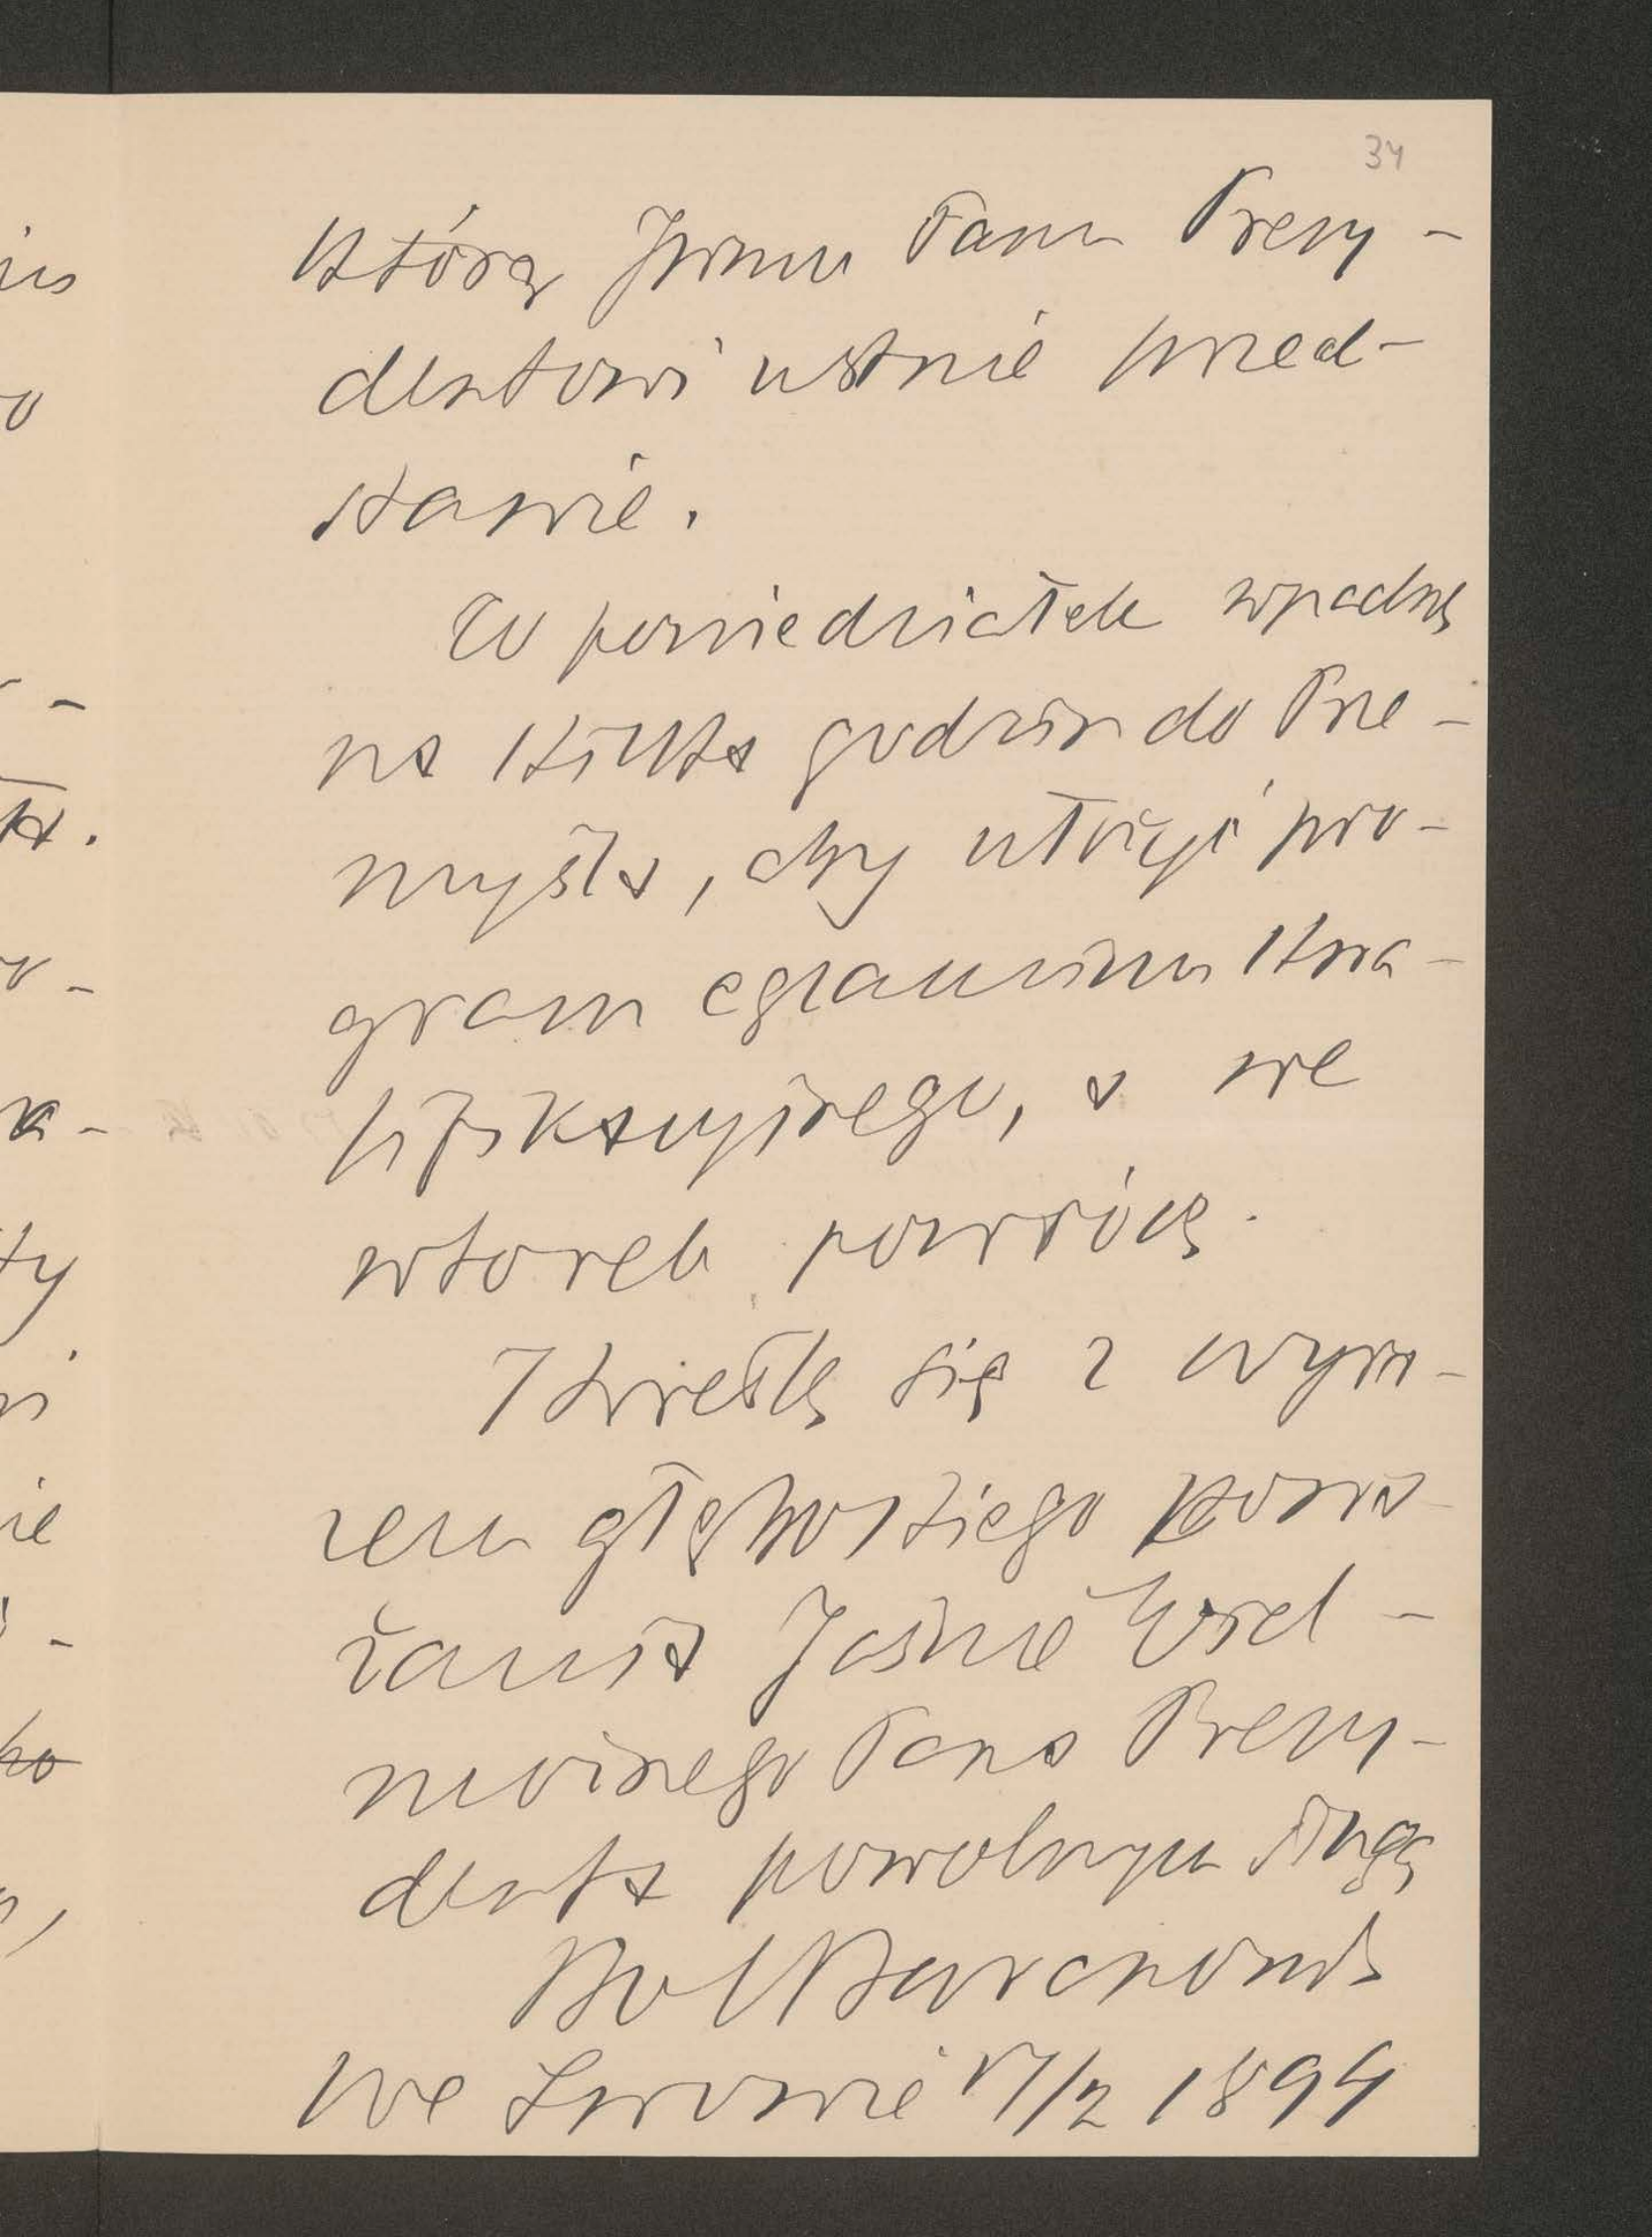 34
którą JWmu Panu Prezy-
dentowi ustnie przed-
stawię.
W poniedziałek wpadnę
na kilka godzin do Prze-
myśla, aby ułożyć pro-
gram egzaminu kwa-
lifikacyjnego, a we
wtorek powrócę.
Kreślę się z wyra-
zem głębokiego powa-
żania Jaśnie Wiel-
możnego Pana Prezy-
denta powolnym sługą
Bol Baranowski
We Lwowie 17/2 1894